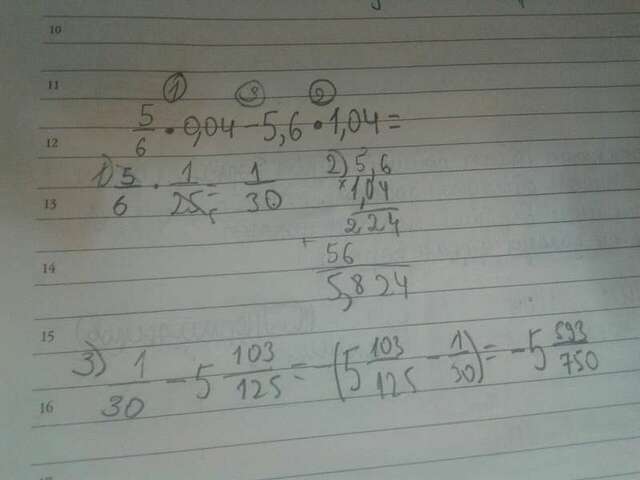 10
11
① ③ ②
12 5/6 · 0,04 - 5,6 · 1,04 =
1) 5/6 · 1/25 = 1/30 2) 5,6
13 × 1,04
224
+
14 56
5,824
15
3) 1/30 - 5 103/125 = -(5 103/125 - 1/30) = -5 593/750
16